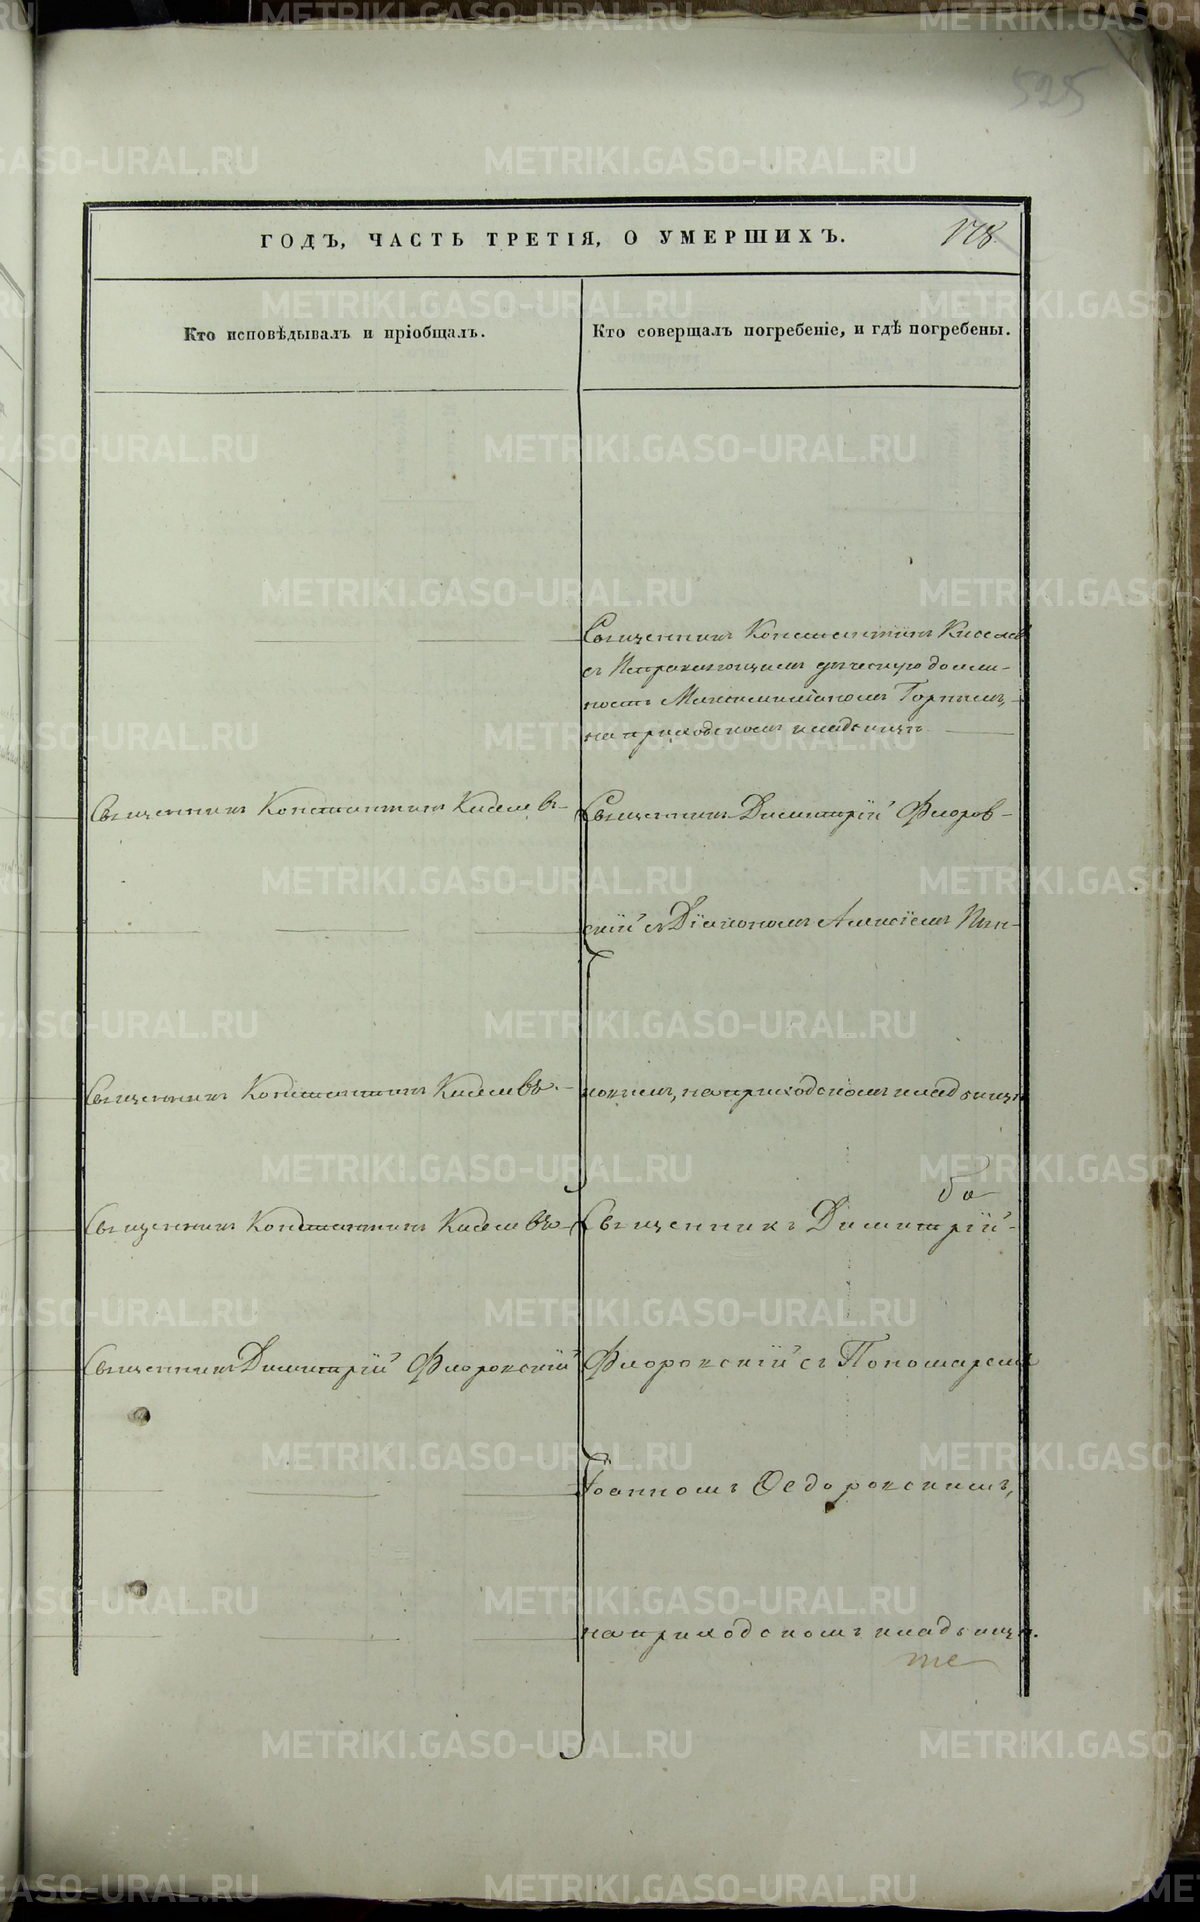 525
ГОДЪ, ЧАСТЬ ТРЕТІЯ, О УМЕРШИХЪ.
178
Кто исповѣдывалъ и пріобщалъ.
Кто совершалъ погребеніе, и гдѣ погребены.
Священникъ Константинъ Киселевъ
съ Исправляющимъ дьяческую долж-
ность Максимиліаномъ Горнымъ,
на приходскомъ кладбищѣ
Священникъ Константинъ Киселевъ
Священникъ Димитрій Флоров-
скій съ Діакономъ Алексіемъ
на приходскомъ кладбищѣ
Священникъ Константинъ Киселевъ
Священникъ Константинъ Киселевъ
Священникъ Димитрій
Священникъ Димитрій Флоровскій
Флоровскій съ Пономаремъ
Іоанномъ Федоровскимъ,
на приходскомъ кладбищѣ.
METRIKI.GASO-URAL.RU